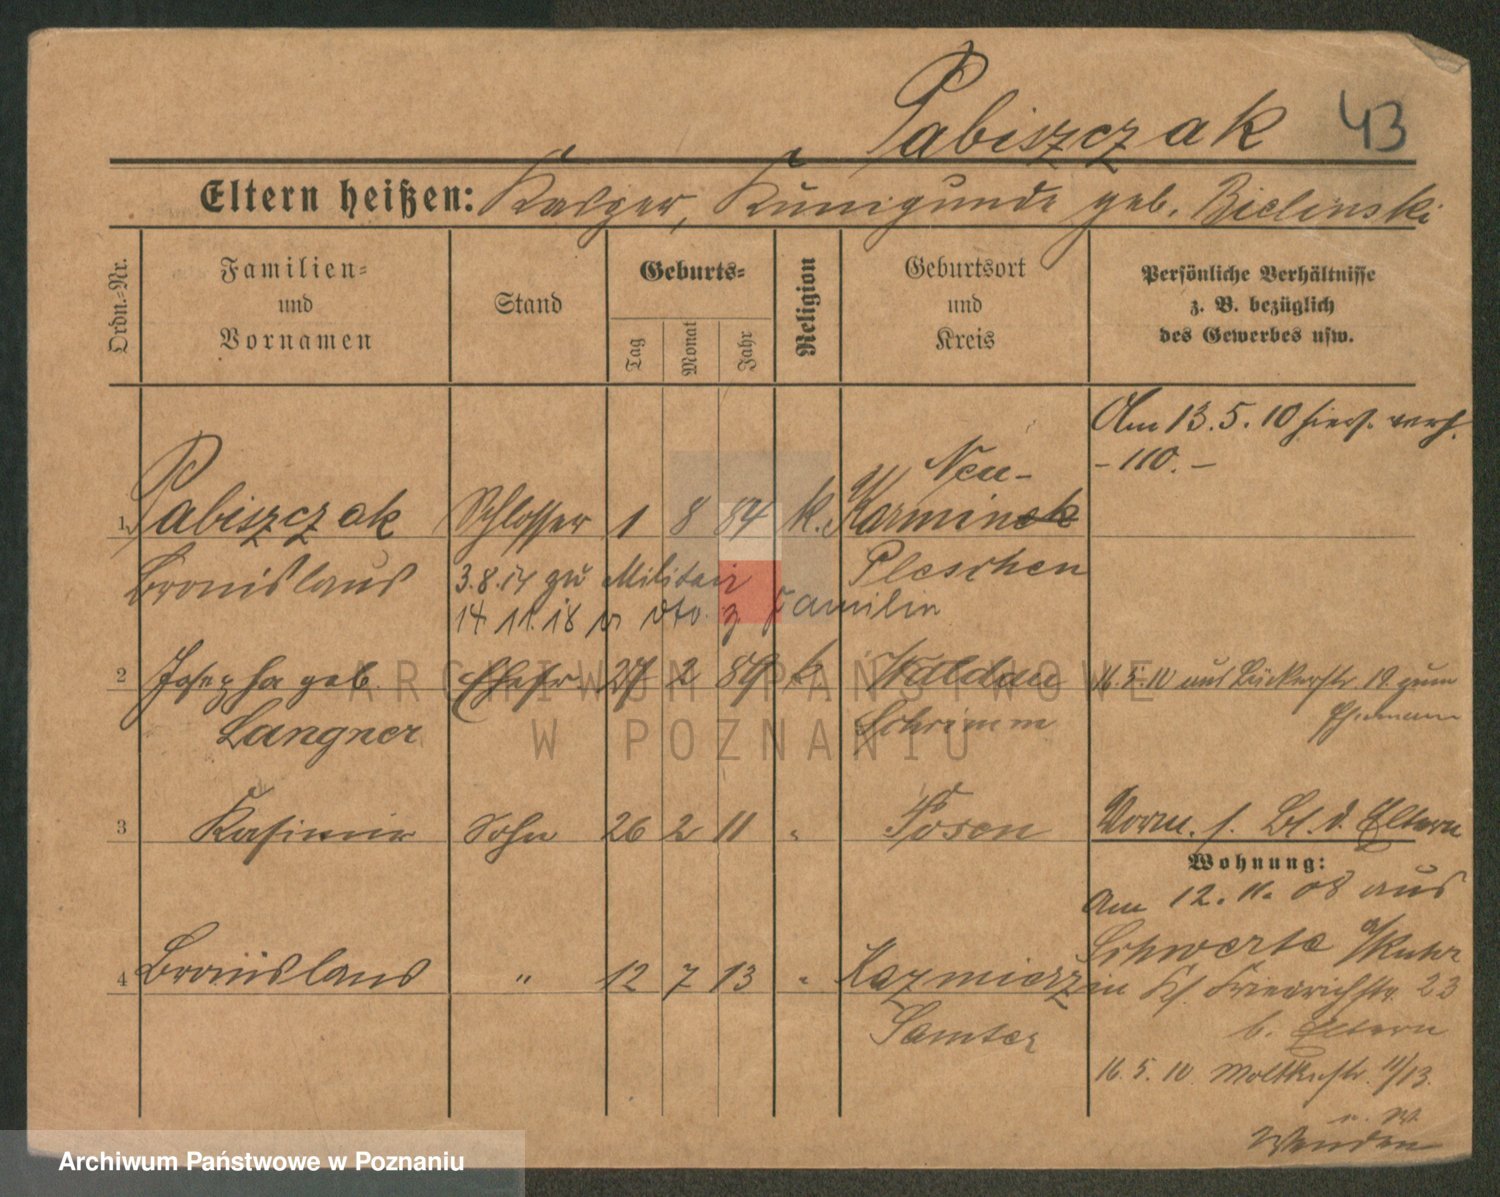 Pabiszczak 43
Eltern heißen: Kasper, Kunigunde geb. Bielinski
Ordn.=Nr.
Familien=
und
Vornamen
Stand
Geburts=
Tag
Monat
Jahr
Religion
Geburtsort
und
Kreis
Persönliche Verhältnisse
z. B. bezüglich
des Gewerbes usw.
Am 13.5.10 hiers. verh.
- 110. -
1 Pabiszczak Schlosser 1 8 84 k. Neu-
Karminek
Bronislaus Pleschen
3.8.14 zu Militair
14.11.18 v dto. z Familie
2 Josepha geb. Ehefr 27 2 89 k Waldau 16.5.10 aus Bäckerstr. 19 zum
Langner Schrimm Ehemann
3 Kasimir Sohn 26 2 11 " Posen Vorm. s. Bl. d. Eltern
Wohnung:
Am 12.11.08 aus
4 Bronislaus " 12 7 13 " Kazmierz Schwerte a/Ruhr
Samter in Friedrichstr. 23
b. Eltern
16.5.10 Moltkestr. 11/13.
u. W.
Wenden
ARCHIWUM PAŃSTWOWE
W POZNANIU
Archiwum Państwowe w Poznaniu